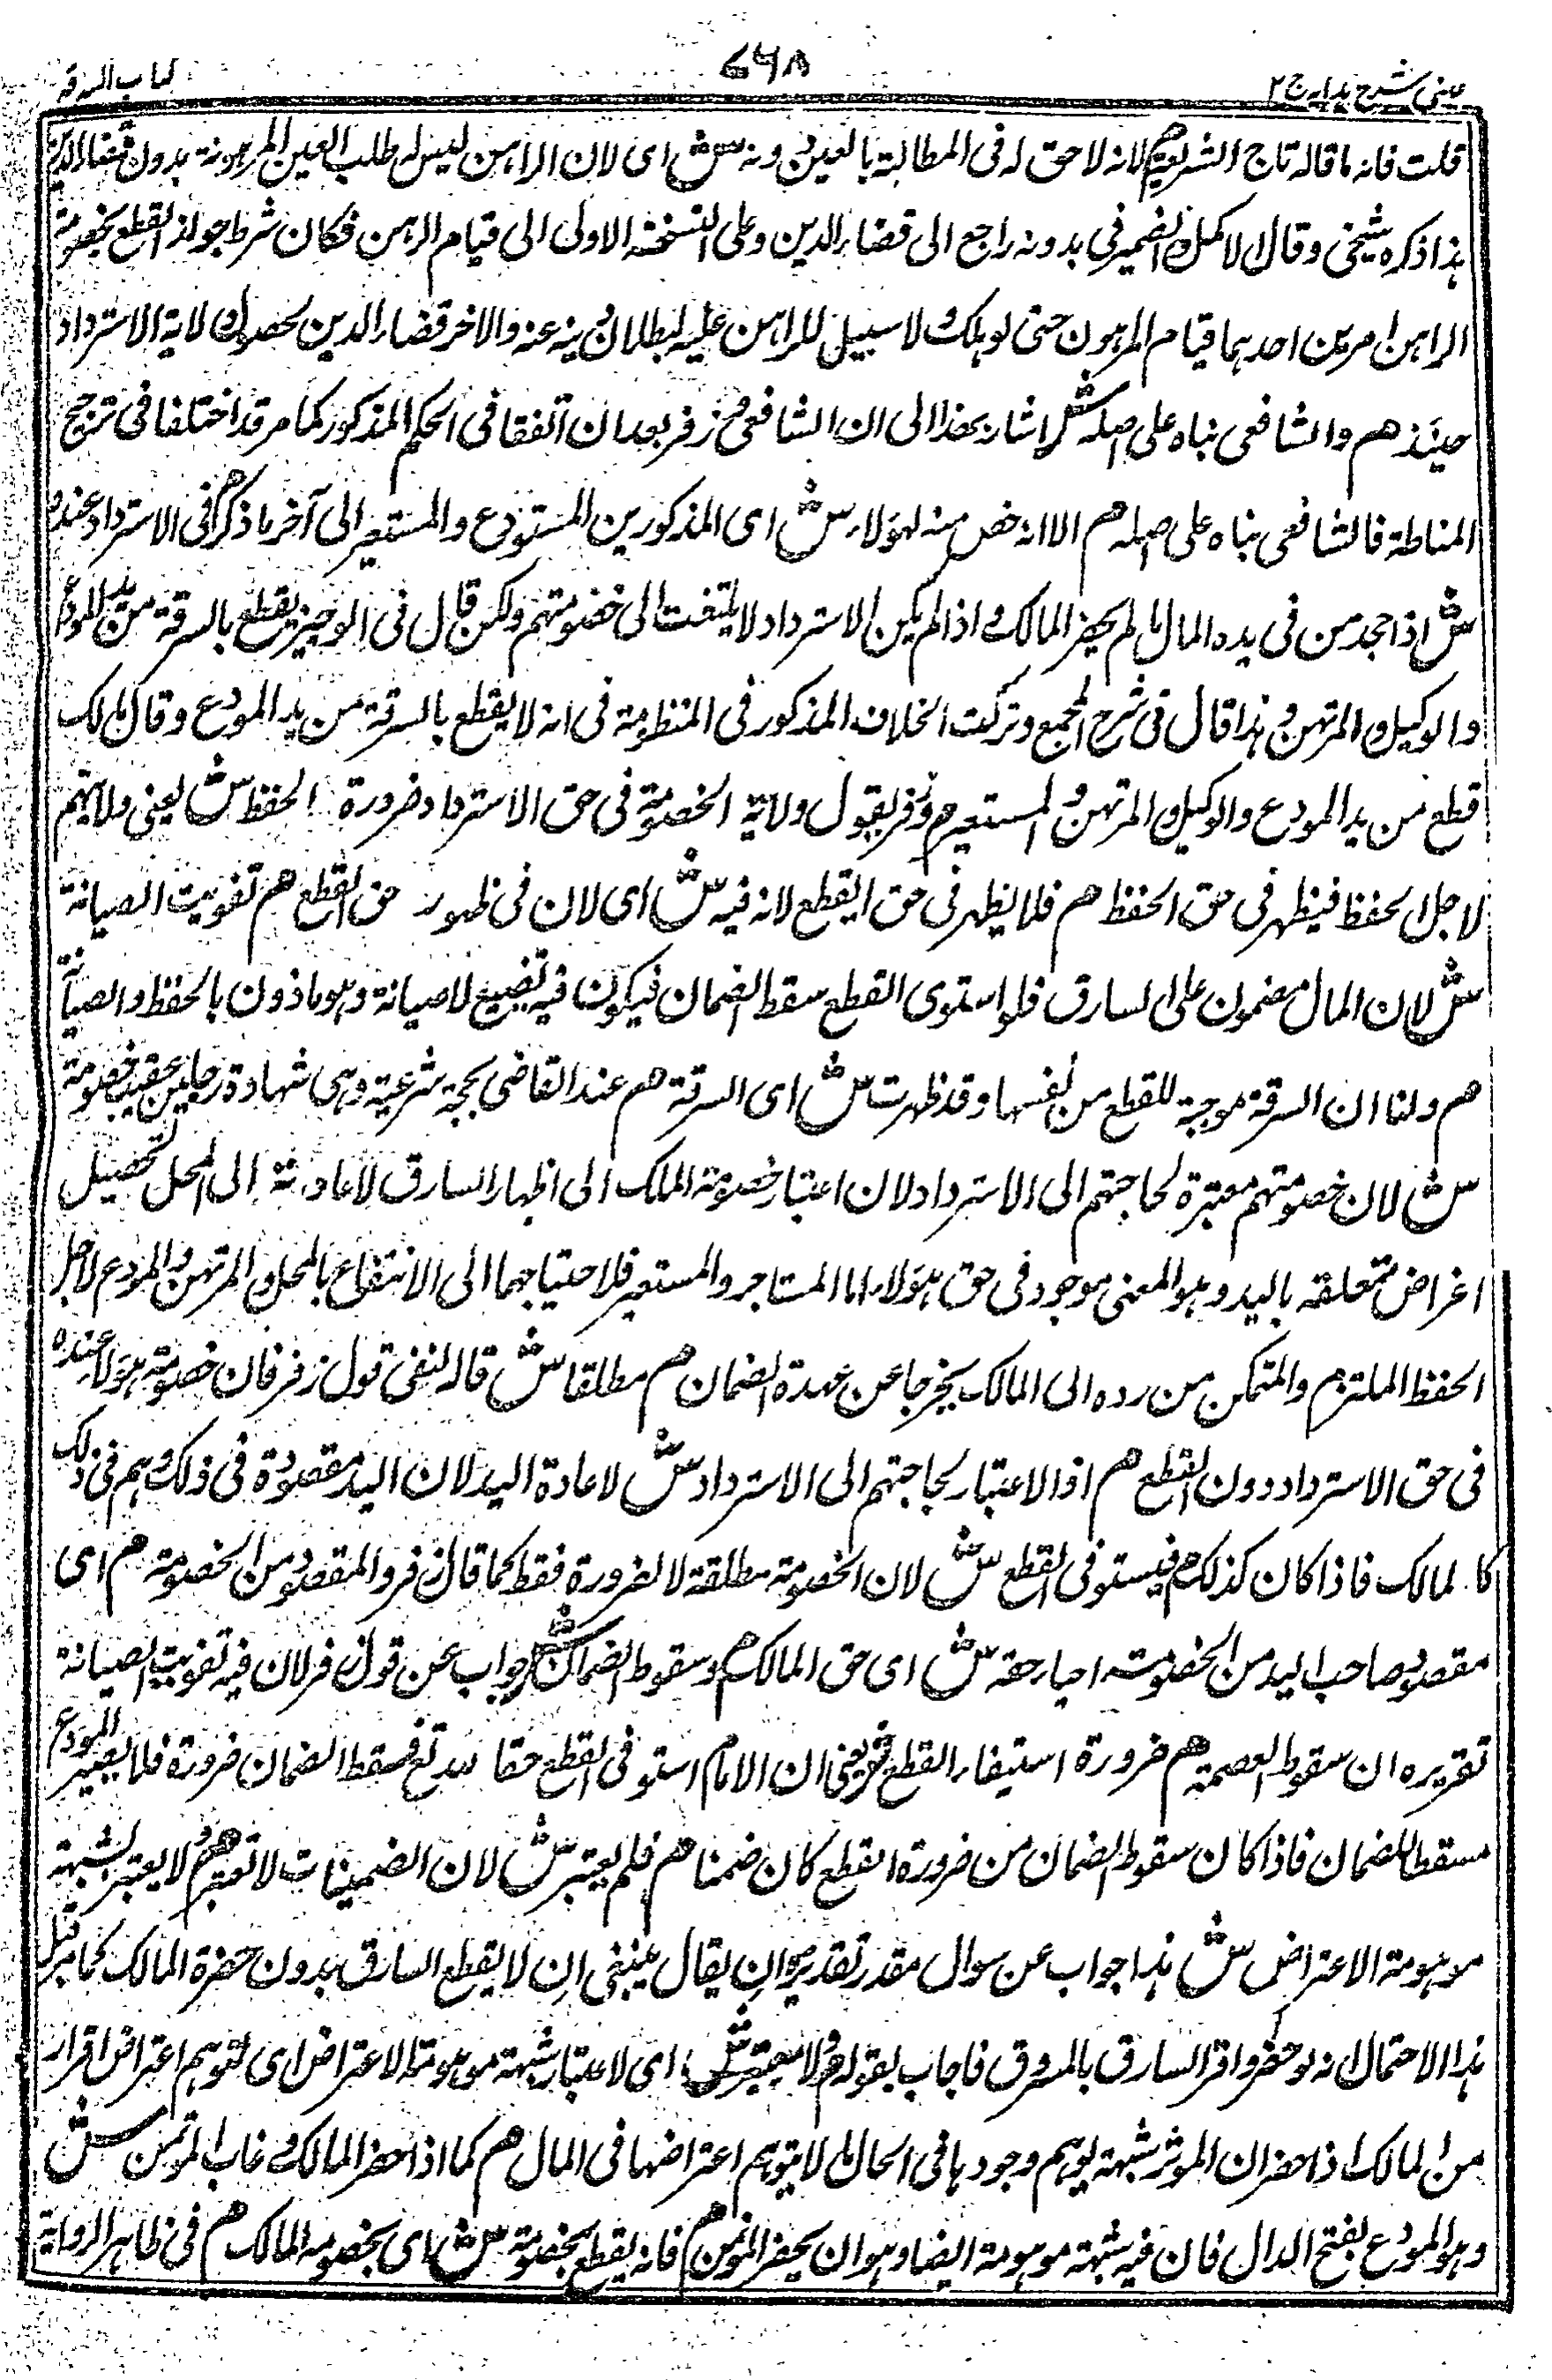 عینی شرح ہدایہ ج ۲
۷۶۸
کتاب السرقہ
قلت فانہ ما قالہ تاج الشریعة م لانہ لا حق لہ فی المطالبة بالعین دونہ ش ای لان الراہن لیس لہ طلب العین المرہونة بدون قضاء الدین
ہذا ذکرہ شیخی وقال الاکمل والضمیر فی بدونہ راجع الی قضاء الدین وعلی النسخة الاولی الی قیام الرہن فکان شرط جواز القطع بخصومة
الراہن امرین احدہما قیام المرہون حتی لو ہلک لا سبیل للراہن علیہ لبطلان دینہ عنہ والاخر قضاء الدین لحصول ولایة الاسترداد
حینئذ م والشافعی بناہ علی اصلہ ش اشار بھذا الی ان الشافعی وزفر بعد ان اتفقا فی الحکم المذکور کما مر قد اختلفا فی ترجیح
المناطة فالشافعی بناہ علی اصلہ م الا انہ خص منہ لہولاء ش ای المذکورین المستودع والمستعیر الی آخر ما ذکر م فی الاسترداد عندہ
ش اذا جحد من فی یدہ المال ما لم یحضر المالک واذا لم یکن الاسترداد لا یلتفت الی خصومتہم ولکن قال فی الوجیز یقطع بالسرقة من ید المودع
والوکیل والمرتہن وہذا قال فی شرح المجمع وترکت الخلاف المذکور فی المنظومة فی انہ لا یقطع بالسرقة من ید المودع وقال مالک
قطع من ید المودع والوکیل والمرتہن والمستعیر م وزفر یقول ولایة الخصومة فی حق الاسترداد ضرورة الحفظ ش یعنی ولایتہم
لاجل الحفظ فیظہر فی حق الحفظ م فلا یظہر فی حق القطع لانہ فیہ ش ای لان فی ظہور حق القطع م تفویت الصیانة
ش لان المال مضمون علی السارق فلو استوفی القطع سقط الضمان فیکون فیہ تضییع لا صیانة وہو ماذون بالحفظ والصیانة
م ولنا ان السرقة موجبة للقطع من نفسہا وقد ظہرت ش ای السرقة م عند القاضی بحجة شرعیة وہی شہادة رجلین عقیب خصومة
ش لان خصومتہم معتبرة لحاجتہم الی الاسترداد لان اعتبار خصومة الملک الی اظہار السارق لاعادتہ الی المحل لتحصیل
اغراض متعلقہ بالید وہو المعنی موجود فی حق ہولاء اما المستاجر والمستعیر فلاحتیاجہما الی الانتفاع بالمحل والمرتہن والمودع لاجل
الحفظ الملتزم والمتمکن من ردہ الی المالک یخرجا عن عہدة الضمان م مطلقا ش قالہ لنفی قول زفر فان خصومة ہولاء عندہ
فی حق الاسترداد دون القطع م اذ الاعتبار لحاجتہم الی الاسترداد ش لاعادة الید لان الید مقصودة فی ذلک وہم فی ذلک
کالمالک فاذا کان کذلک م فیستوفی القطع ش لان الخصومة مطلقة لا لضرورة فقط کما قال زفر والمقصود من الخصومة م ای
مقصود صاحب الید من الخصومة احیاء حقہ ش ای حق المالک م وسقوط الضمان ش جواب عن قول زفر لان فیہ تفویت الصیانة
تقریرہ ان سقوط العصمة م ضرورة استیفاء القطع ش یعنی ان الامام استوفی القطع حقا للہ تع فسقط الضمان ضرورة فلا یصیر المودع
مسقطا للضمان فاذا کان سقوط الضمان من ضرورة القطع کان ضمنا م فلم یعتبر ش لان الضمنیات لا تعتبر م ولا یعتبر لشبہة
موہومة الاعتراض ش ہذا جواب عن سوال مقدر تقدیرہ ان یقال ینبغی ان لا یقطع السارق بدون حضرة المالک کما مر قبل
ہذا الاحتمال انہ لو حضر واقر السارق بالمسروق فاجاب بقولہ م ولا معتبر ش ای لا اعتبار بشبہة موہومة الاعتراض ای لتوہم اعتراض اقرار
من المالک اذا حضر ان الموثر شبہة یوہم وجودہا فی الحال ما لا یتوہم اعتراضہا فی المال م کما اذا حضر المالک وغاب المؤتمن ش
وہو المودع بفتح الدال فان فیہ شبہة موہومة ایضا وہو ان یحضر المؤتمن م فانہ یقطع بخصومة ش ای بخصومة المالک م فی ظاہر الروایة